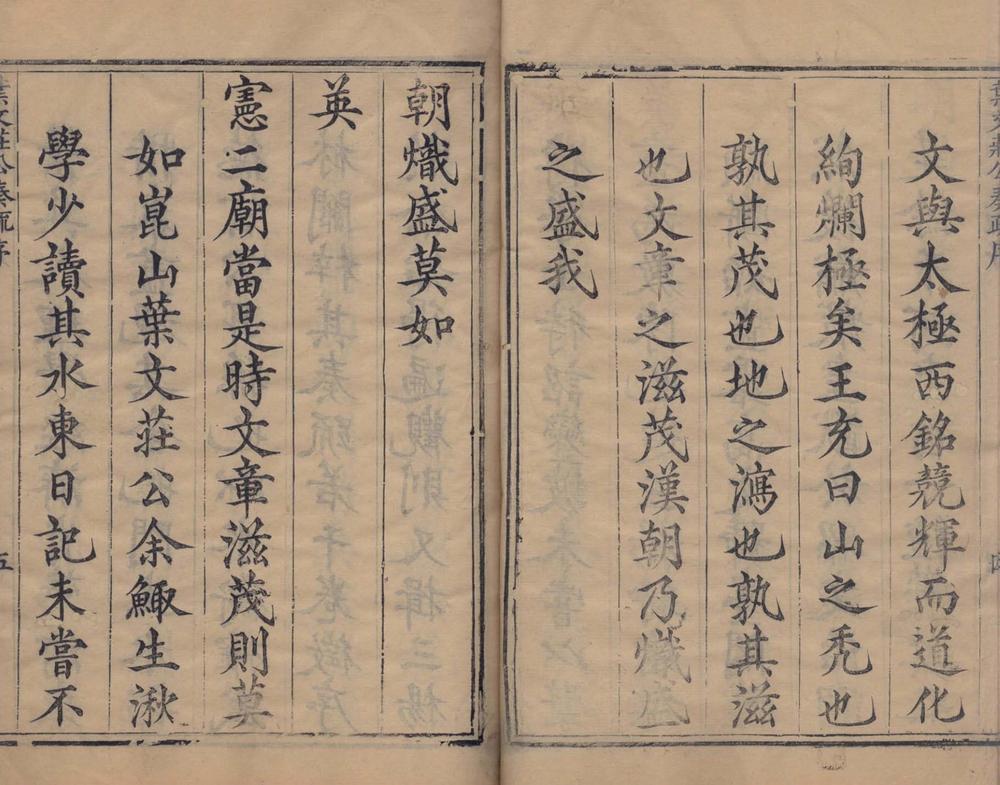 文與太極西銘競輝而道化
絢爛極矣王充曰山之禿也
孰其茂也地之瀉也孰其滋
也文章之滋茂漢朝乃熾盛
之盛我
朝熾盛莫如
英
憲二廟當是時文章滋茂則莫
如崑山葉文莊公余鯫生湫
學少讀其水東日記未嘗不
葉文莊公奏疏序
五